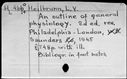 Heilbrunn, L.V.
An outline of general
physiology. 2d ed. rev.
Philadelphia-London,
Saunders 1945
748p. with ill.
Bibliogr. in foot notes